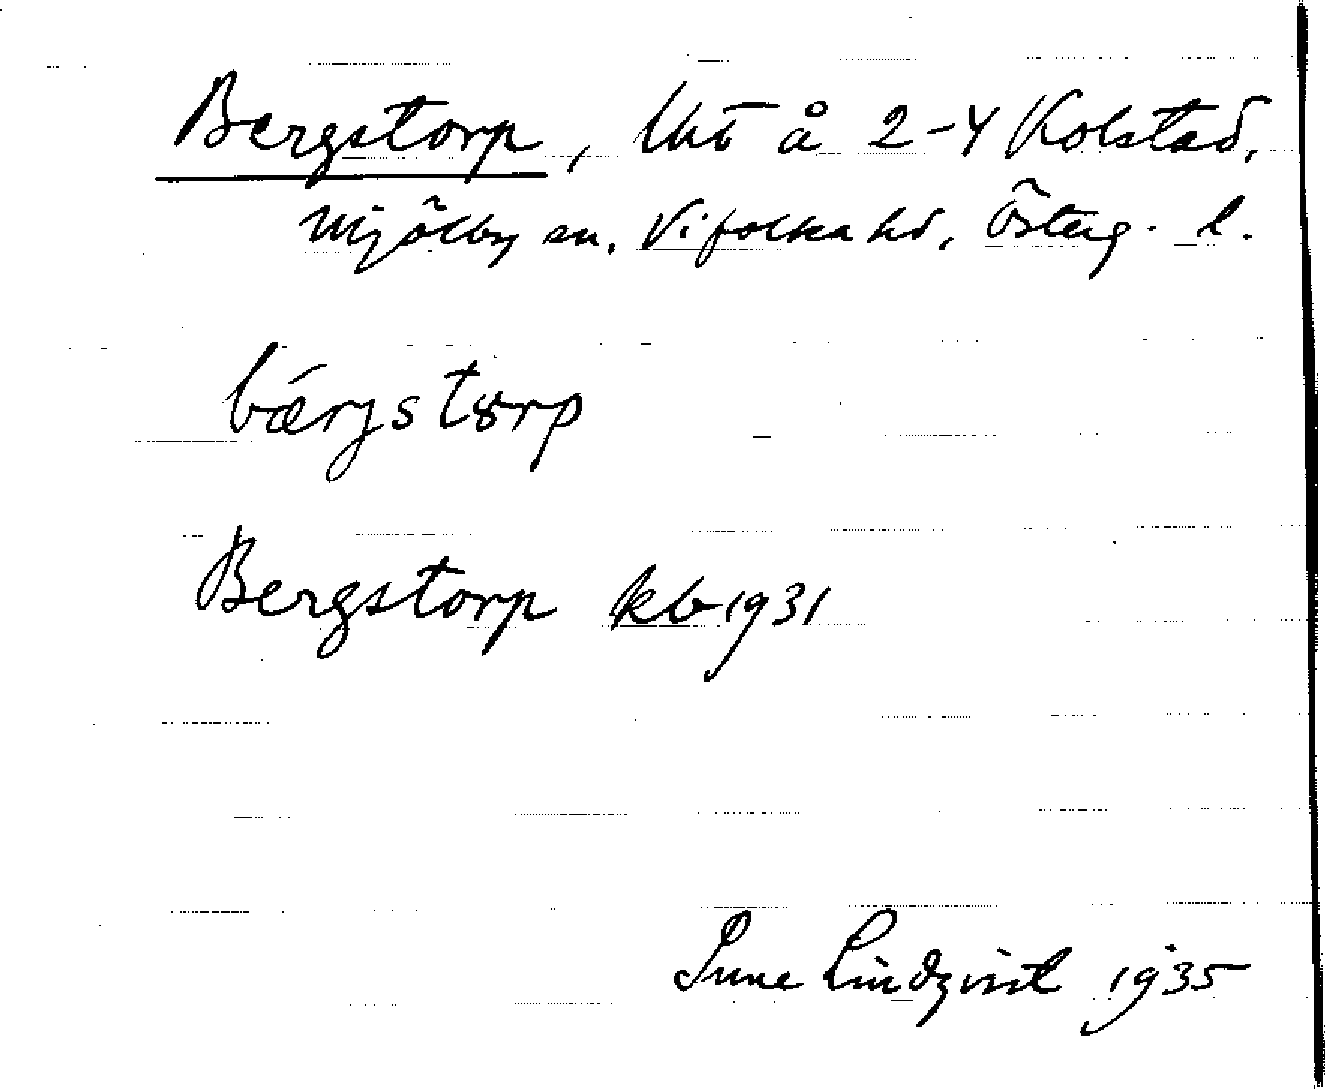 Bergstorp, lht å 2-4 Kolstad,
Mjölby sn, Vifolka hd, Österg. l.
bǽrjstorp
Bergstorp kb 1931
Sune Lindqvist 1935